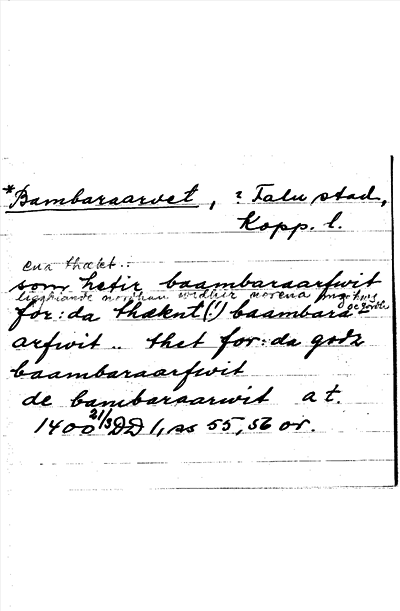 *Bambaraarvet, ? Falu stad,
Kopp. l.
ena thækt..
som hetir baambaraarfwit
ligghiande nordhan widhir norena
for:da thæknt(!) baambara
arfwit .. thet for:da godz
baambaraarfwit
de bambaraarwit a t.
1400 21/3 DD 1, ss 55, 56 or.